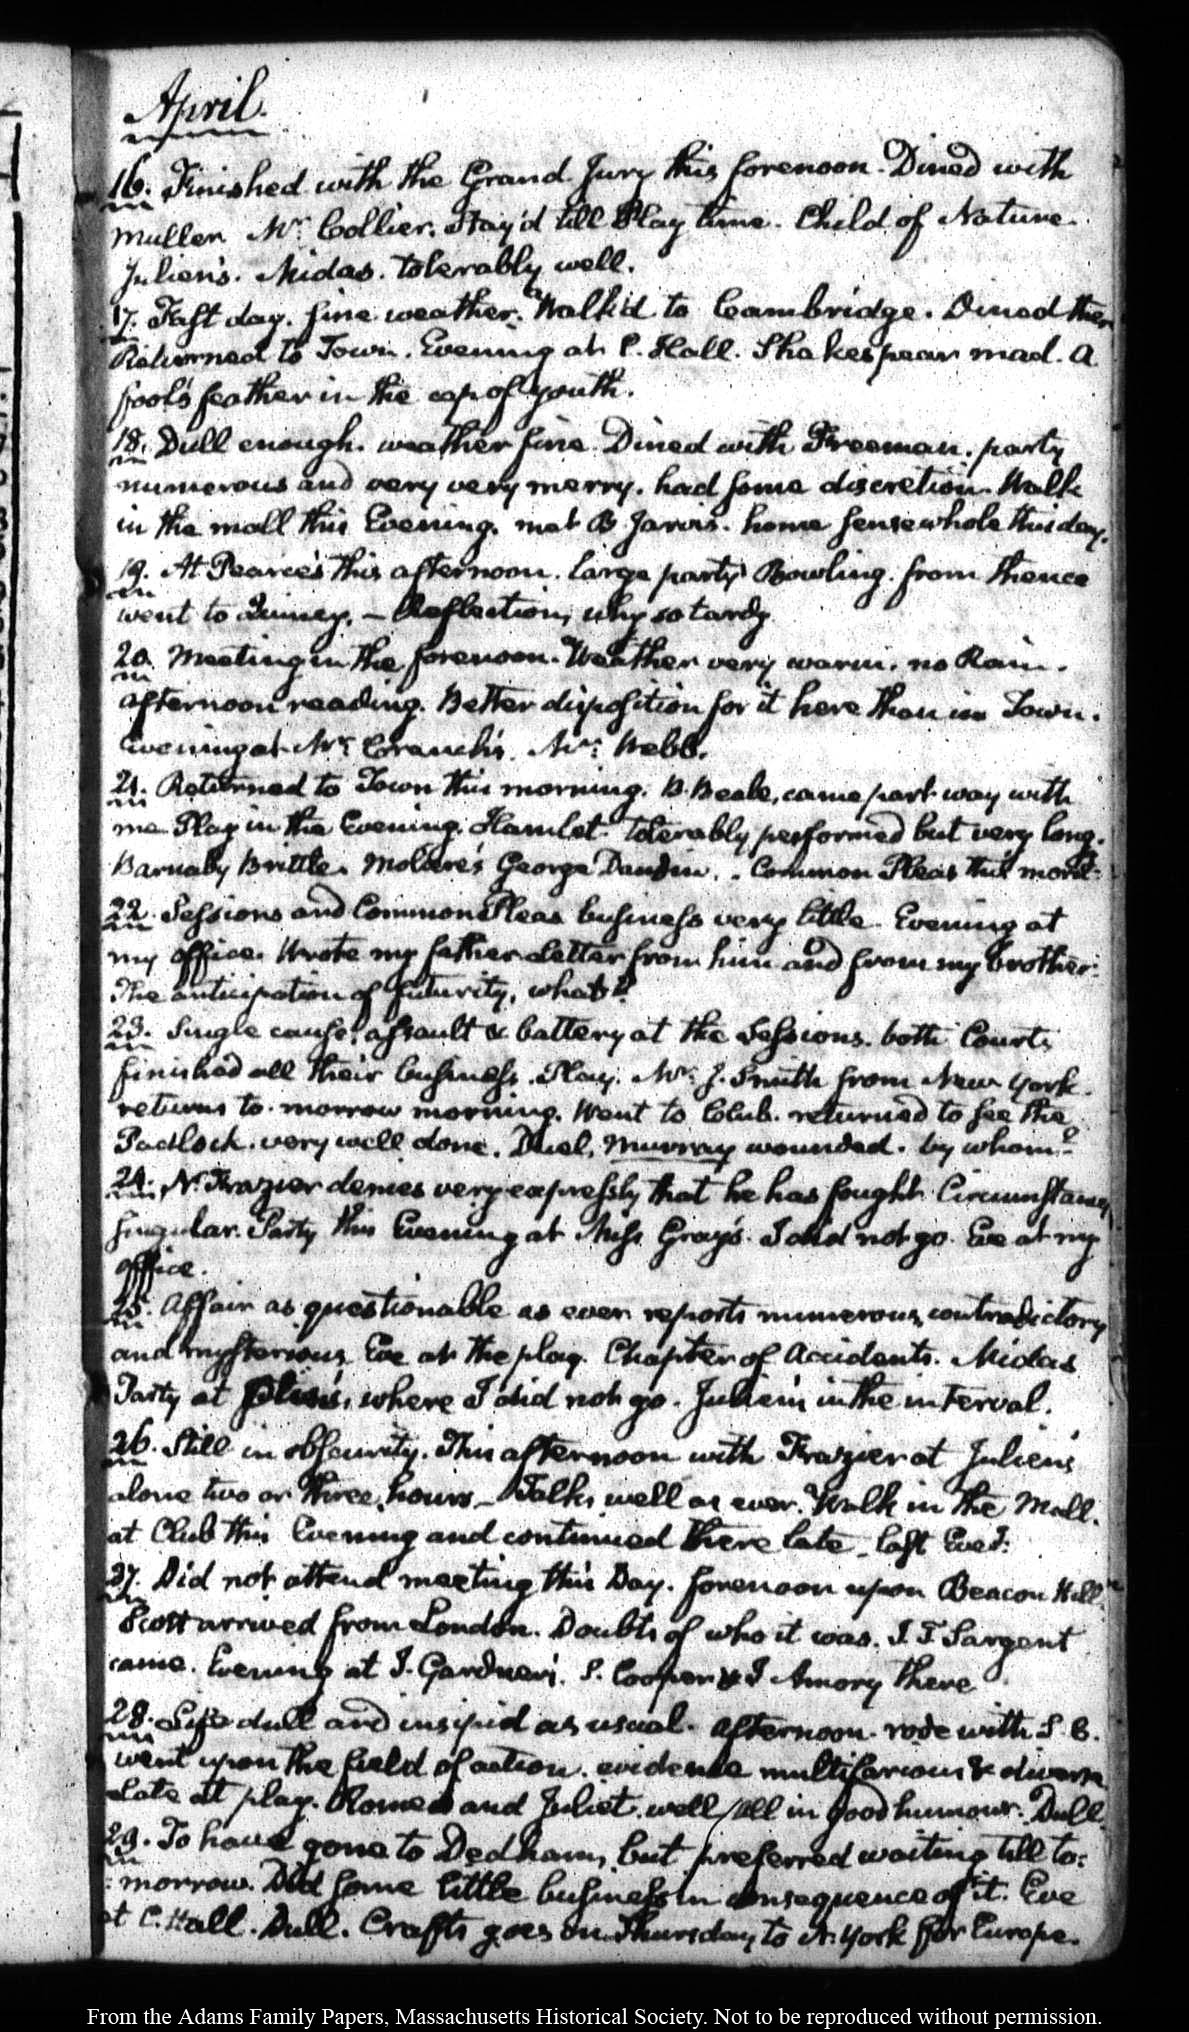 April.
16. Finished with the Grand Jury this forenoon. Dined with
Mullen Mr. Collier. Stay'd till Play time. Child of Nature.
Julien's. Midas. tolerably well.
17. Fast day. fine weather. Walk'd to Cambridge. Dined there
Returned to Town. Evening at C. Hall. Shakespear mad. A
fool's feather in the cap of youth.
18. Dull enough. weather fine. Dined with Freeman. party
numerous and very very merry. had some discretion. Walk
in the mall this Evening. met B Jarvis. home sense whole this day.
19. At Pearce's this afternoon. large party Bowling. from thence
went to Quincy. — Reflection, why so tardy
20. Meeting in the forenoon. Weather very warm. no Rain.
afternoon reading. Better disposition for it here than in Town.
Evening at Mr. Cranch's. Mrs. Webb.
21. Returned to Town this morning. B. Beale, came part way with
me Play in the Evening. Hamlet. tolerably performed but very long.
Barnaby Brittle. Moliere's George Dandin. . Common Pleas this morng.
22. Sessions and Common Pleas business very little. Evening at
my office. Wrote my father Letter from him and from my brother.
The anticipation of futurity, what?
23. Single cause, assault & battery at the Sessions. both Courts
finished all their business. Play. Mr. J. Smith from New York.
returns to-morrow morning. Went to Club. returned to see the
Padlock. very well done. Duel. Murray wounded. by whom?
24. N. Frazier denies very expressly that he has fought. Circumstances
singular. Party this Evening at Miss Gray's. I did not go. Eve at my
office.
25. Affair as questionable as ever reports numerous, contradictory
and mysterious. Eve at the play. Chapter of Accidents. Midas
Party at where I did not go. Julien's in the interval.
26. Still in obscurity. This afternoon with Frazier at Julien's
alone two or three hours — Talks well as ever. Walk in the Mall.
at Club this Evening and continued there late — last Eveg.
27. Did not attend meeting this Day. forenoon upon Beacon Hill.
Scott arrived from London. Doubts of who it was. J. T Sargent
came. Evening at J. Gardner's. S. Cooper & J Amory there
28. Life dull and insipid as usual. afternoon. rode with S. C.
went upon the field of action. evidence multifarious & diverse
Late at play. Romeo and Juliet. well, all in good humour. Dull.
29. To have gone to Dedham, but preferred waiting till to:
:morrow. Did some little business in consequence of it. Eve
at C. Hall. Dull. Crafts goes on Thursday to N. York for Europe.
From the Adams Family Papers, Massachusetts Historical Society. Not to be reproduced without permission.